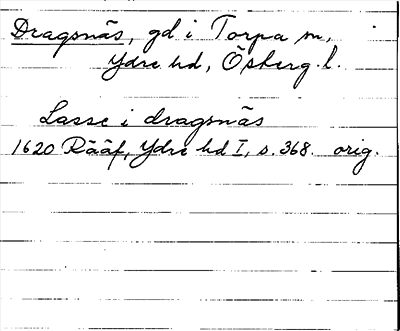 Dragsnäs, gd i Torpa sn,
Ydre hd, Ösberg. l.
Lasse i dragsnäs
1620 Rääf, Ydre hd I, s. 368. orig.